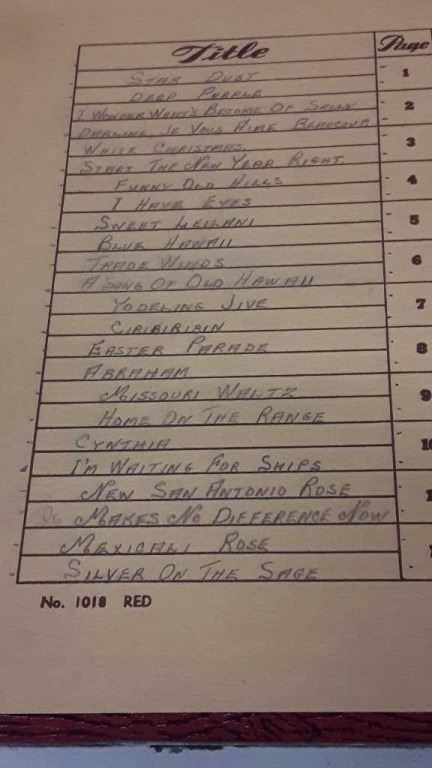 Title Page
STAR DUST 1
DEEP PURPLE
I WONDER WHAT'S BECOME OF SALLY 2
DARLING, JE VOUS AIME BEAUCOUP
WHITE CHRISTMAS. 3
START THE NEW YEAR RIGHT
FUNNY OLD HILLS 4
I HAVE EYES
SWEET LEILANI 5
BLUE HAWAII
TRADE WINDS 6
A SONG OF OLD HAWAII
YODELING JIVE 7
CIRIBIRIBIN
EASTER PARADE 8
ABRAHAM
MISSOURI WALTZ 9
HOME ON THE RANGE
CYNTHIA 10
I'M WAITING FOR SHIPS
NEW SAN ANTONIO ROSE
MAKES NO DIFFERENCE NOW
MEXICALI ROSE
SILVER ON THE SAGE
No. 1018 RED